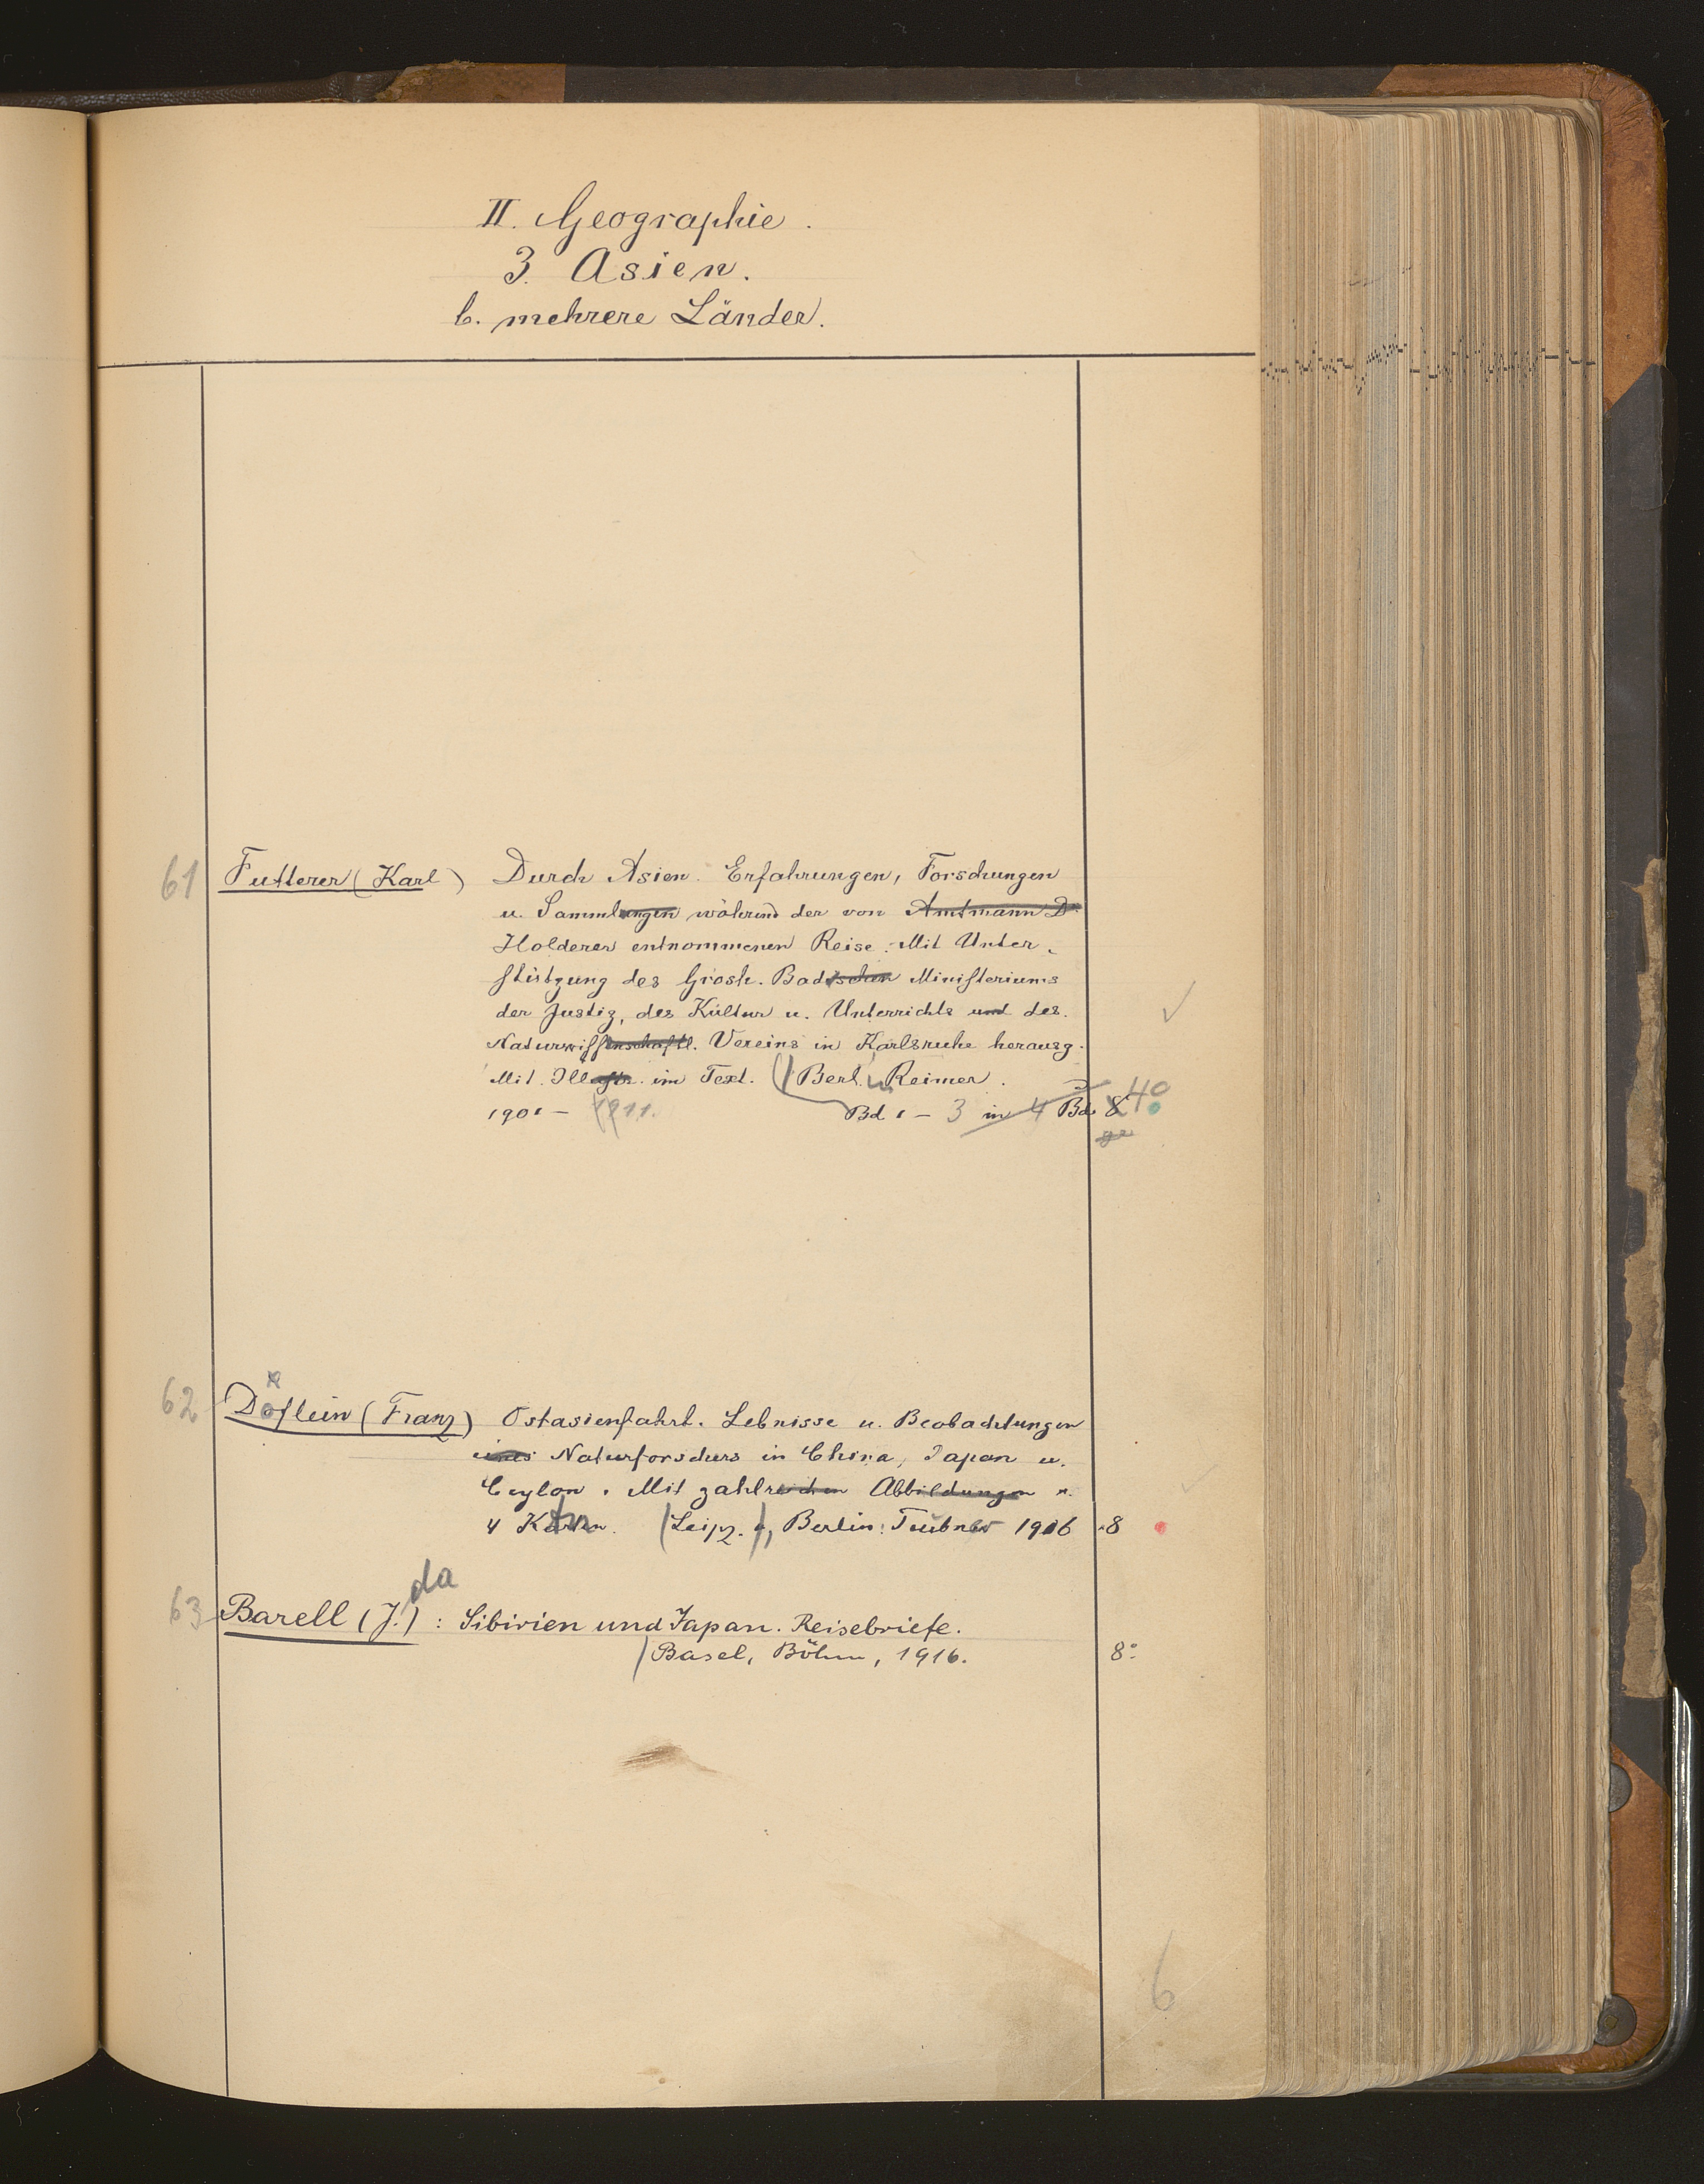 II. Geographie.
3. Asien.
b. mehrere Länder.
61 Futterer (Karl) Durch Asien. Erfahrungen, Forschungen
u. Sammlungen während der von Amtmann Dr
Holderer entnommenen Reise. Mit Unter-
stützung des Grosh. Badischen Ministeriums
der Justiz, des Kultur u. Unterrichts und des
Naturwissenschaftl. Vereins in Karlsruhe herausg.
Mit Illustr. im Text. (Berl. Reimer.
1901 - 1911. Bd 1 - 3 in 4 Bd 8 40
62 Doflein (Franz) Ostasienfahrt. Lebnisse u. Beobachtungen
eines Naturforschers in China, Japan u.
Ceylon. Mit zahlreichen Abbildungen u.
4 Karten. (Leipz. u, Berlin: Teubner 1906 8
da
63 Barell (J.): Sibirien und Japan. Reisebriefe.
Basel, Böhm, 1916. 8°
6